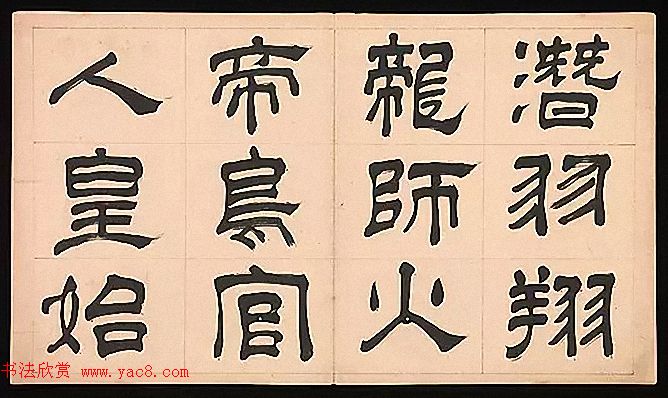 潛羽翔
龍師火
帝鳥官
人皇始
书法欣赏 www.yac8.com